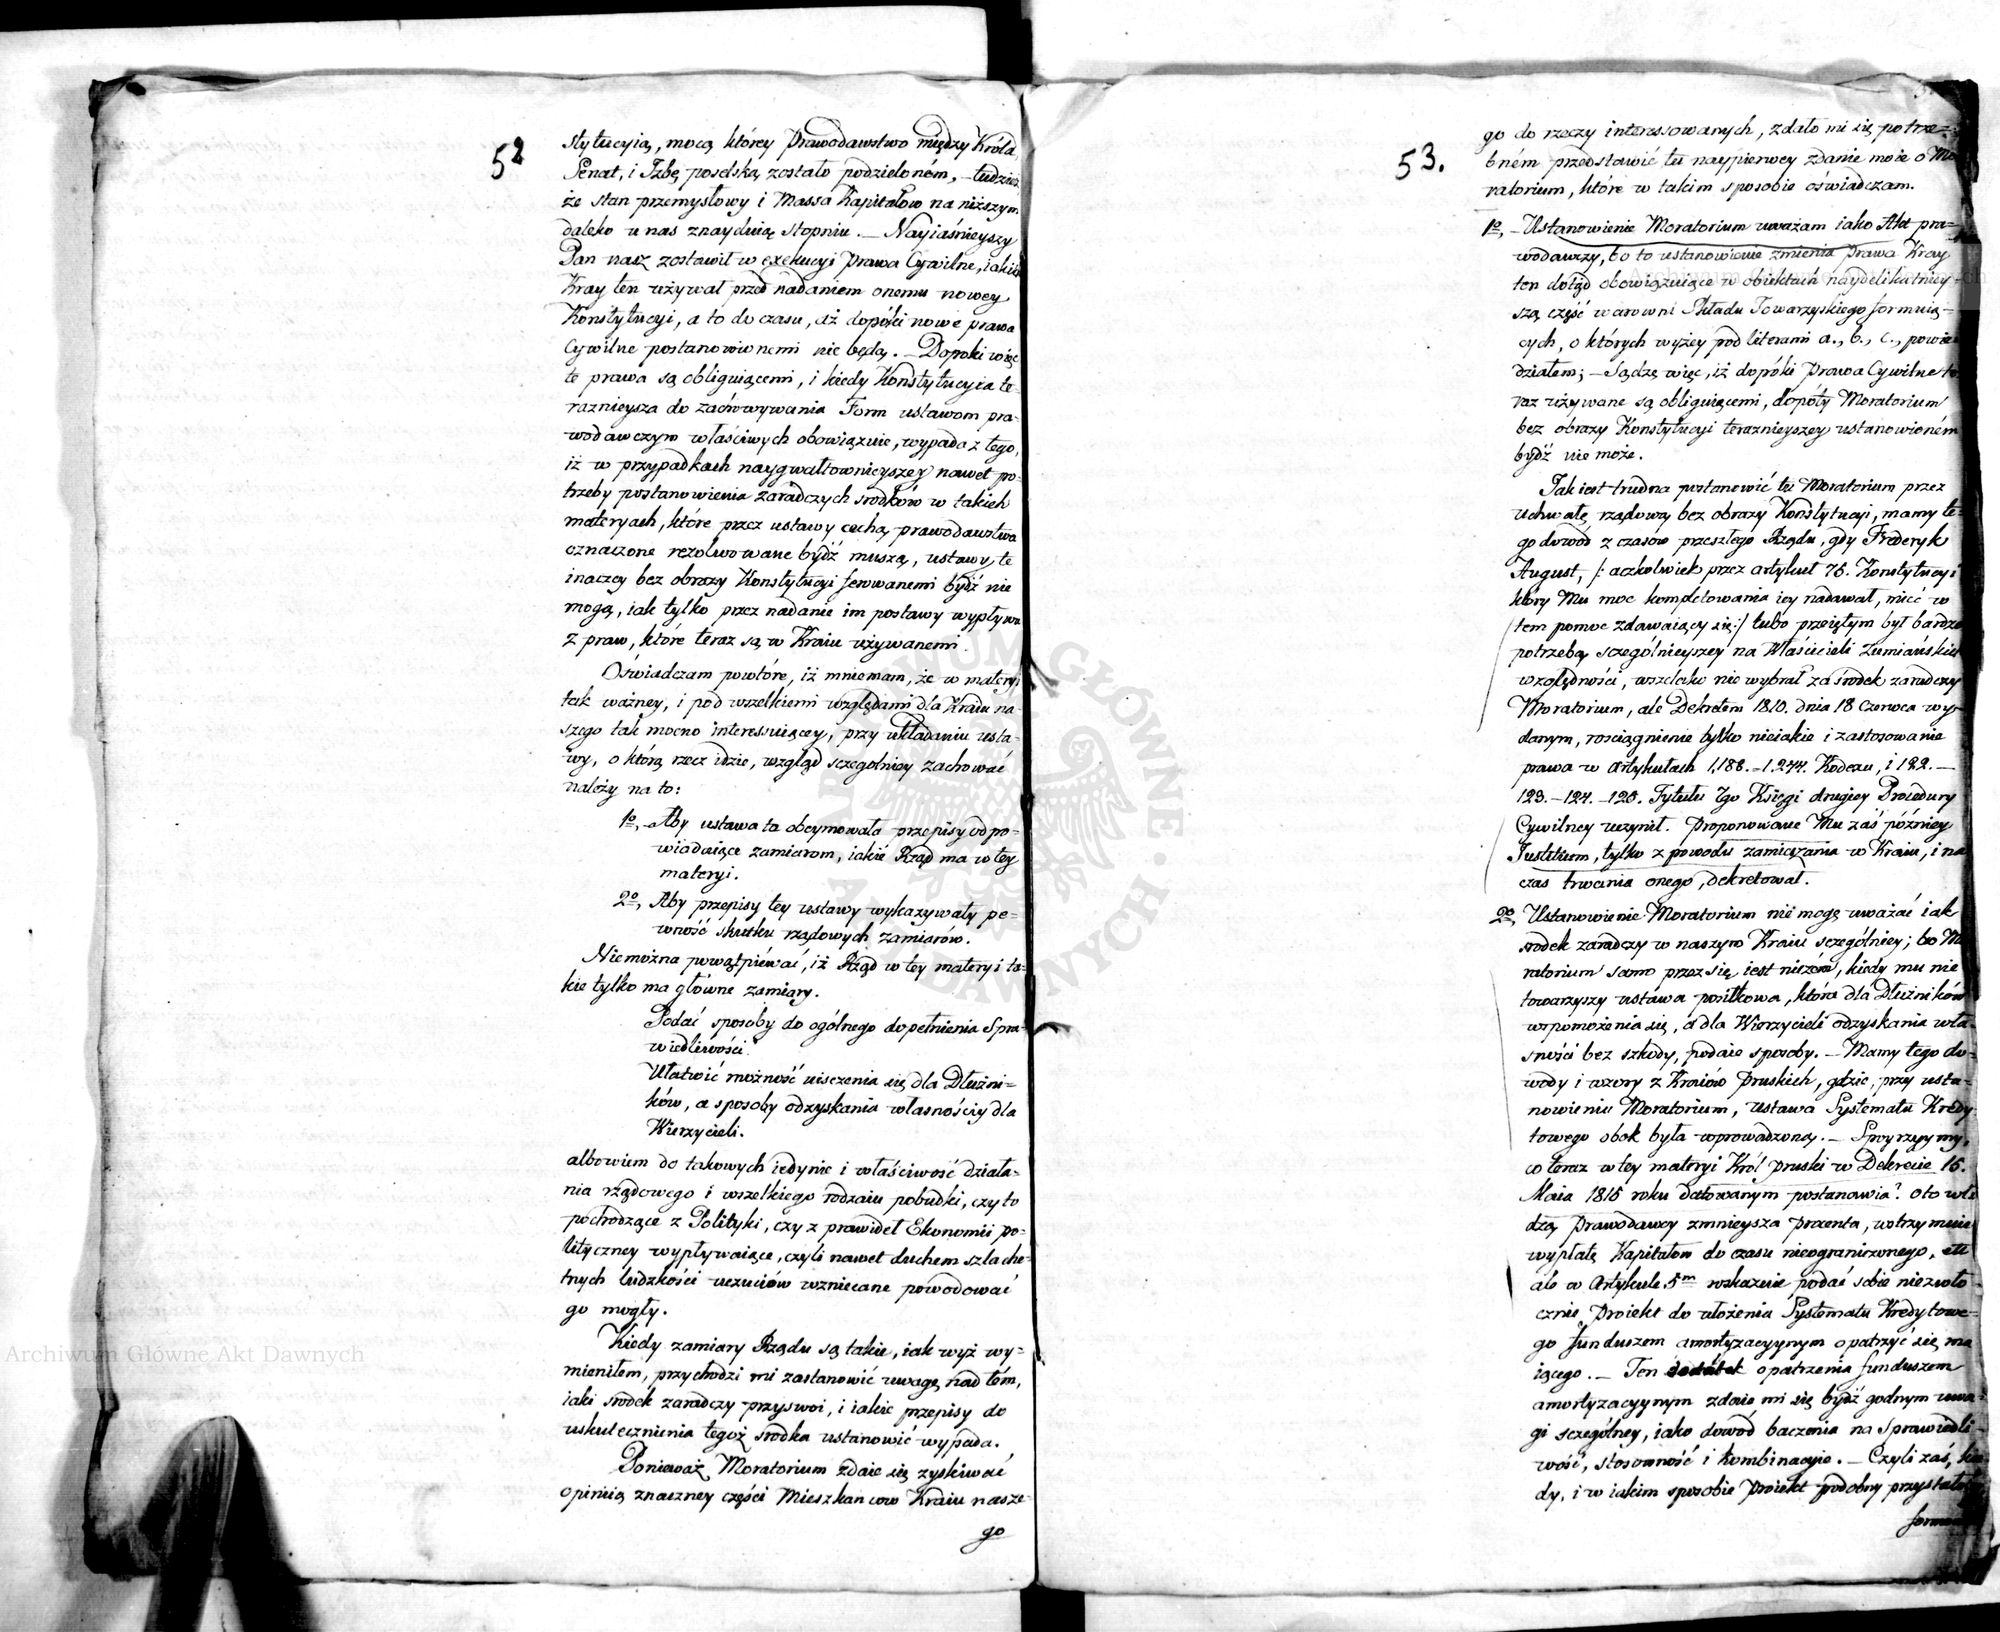 52
stytucyią, mocą którey Prawodawstwo między Króla,
Senat, i Izbę poselską zostało podzieloném, – tudzież
że stan przemysłowy i Massa Kapitałów na niższym
daleko u nas znayduią stopniu. – Nayiaśnieyszy
Pan nasz zostawił w exekucyi Prawa Cywilne, iakich
Kray ten używał przed nadaniem onemu nowey
Konstytucyi, a to do czasu, aż dopóki nowe prawa
Cywilne postanowionemi nie będą. – Dopoki więc
te prawa są obliguiącemi, i kiedy Konstytucyia te-
raznieysza do zachowywania Form ustawom pra-
wodawczym właściwych obowiązuie, wypada z tego,
iż w przypadkach naygwałtownieyszey nawet po-
trzeby postanowienia zaradczych srodków w takich
materyach, które przez ustawy cechą prawodawstwa
oznaczone rezolwowane bydź muszą, ustawy te
inaczey bez obrazy Konstytucyi ferowanemi bydź nie
mogą, iak tylko przez nadanie im postawy wypływa
z praw, które teraz są w Kraiu używanemi.
Oświadczam powtóre, iż mniemam, że w materyi
tak ważney, i pod wszelkiemi względami dla Kraiu na-
szego tak mocno interessuiącey, przy układaniu usta-
wy, o którą rzecz idzie, wzgląd szczegolniey zachować
należy na to:
1o, – Aby ustawa ta obeymowała przepisy odpo-
wiadaiące zamiarom, iakie Rząd ma w tey
materyi.
2o, Aby przepisy tey ustawy wykazywały pe-
wność skutku rządowych zamiarów.
Niemożna powątpiewać, iż Rząd w tey materyi ta-
kie tylko ma główne zamiary.
Podać sposoby do ogólnego dopełnienia Spra-
wiedliwości.
Ułatwić możność uiszczenia się dla Dłużni-
ków, a sposoby odzyskania własności dla
Wierzycieli.
albowiem do takowych iedynie i właściwość działa-
nia rządowego i wszelkiego rodzaiu pobudki, czy to
pochodzące z Polityki, czy z prawideł Ekonomii po-
lityczney wypływaiące, czyli nawet duchem szlache-
tnych ludzkości uczuciów wzniecane powodować
go mogły.
Kiedy zamiary Rządu są takie, iak wyż wy-
mieniłem, przychodzi mi zastanowić uwagę nad tém,
iaki srodek zaradczy przyswoi, i iakie przepisy do
uskutecznienia tegoż srodka ustanowić wypada.
Ponieważ Moratorium zdaie się zyskiwać
opinią znaczney części Mieszkańcow Kraiu nasze-
go
53.
go do rzeczy interessowanych, zdało mi się potrze-
bném przedstawić tu naypierwey zdanie moie o Mo
ratorium, które w takim sposobie oświadczam.
1o, – Ustanowienie Moratorium uważam iako Akt pra-
wodawczy, bo to ustanowienie zmienia Prawa Kray
ten dotąd obowiązuiące w obiektach naydelikatniey-
szą część warowni Składu Towarzyskiego formuią-
cych, o których wyżey pod literami a., b., c., powie
działem; – Sądzę więc, iż dopóki Prawa Cywilne te-
raz używane są obliguiącemi, dopóty Moratorium
bez obrazy Konstytucyi teraznieyszey ustanowioném
bydź nie może.
Jak iest trudna postanowić tu Moratorium przez
uchwałę rządową bez obrazy Konstytucyi, mamy te-
go dowód z czasów przeszłego Rządu, gdy Frederyk
August, /: aczkolwiek przez artykuł 75. Konstytucyi
który Mu moc kompletowania iey nadawał, mieć w
tem pomoc zdawaiący się :/ lubo przeiętym był bardzo
potrzebą szczególnieyszey na Właścicieli Ziemiańskich
względności, wszelako nie wybrał za srodek zaradczy
Moratorium, ale Dekretem 1810. dnia 18 Czerwca wy-
danym, rosciągnienie tylko nieiakie i zastosowanie
prawa w Artykułach 1,188. – 1,244. Kodexu, i 122. –
123. – 124. – 125. Tytułu 7go Księgi drugiey Procedury
Cywilney uczynił. Proponowane Mu zaś później
Justitium, tylko z powodu zamieszania w Kraiu, i na
czas trwania onego, dekretował.
2o Ustanowienie Moratorium nie mogę uważać iak
srodek zaradczy w naszym Kraiu szczególniey; bo Mo
ratorium samo przez się iest niczem, kiedy mu nie
towarzyszy ustawa posiłkowa, która dla Dłużników
wspomożenia się, a dla Wierzycieli odzyskania wła-
sności bez szkody, podaie sposoby. – Mamy tego do-
wody i wzory z Kraiów Pruskich, gdzie, przy usta-
nowieniu Moratorium, ustawa Systematu Kredy-
towego obok była wprowadzoną. – Spoyrzyymy,
co teraz w tey materyi Król Pruski w Dekrecie 15.
Maia 1815 roku datowanym postanawia? oto wła
dzą Prawodawcy zmnieysza procenta, wstrzymuie
wypłatę Kapitałow do czasu nieograniczonego, etc
ale w Artykule 5m wskazuie podać sobie niezwło-
cznie Proiekt do ułożenia Systematu Kredytowe-
go funduszem amortyzacyynym opatrzyć się ma
iącego. – Ten opatrzenia funduszem
amortyzacyynym zdaie mi się bydź godnym uwa-
gi szczególney, iako dowód baczenia na Sprawiedli-
wość, stosowność i Kombinacyie. – Czyli zaś, kie
dy, i w iakim sposobie Proiekt podobny przystało